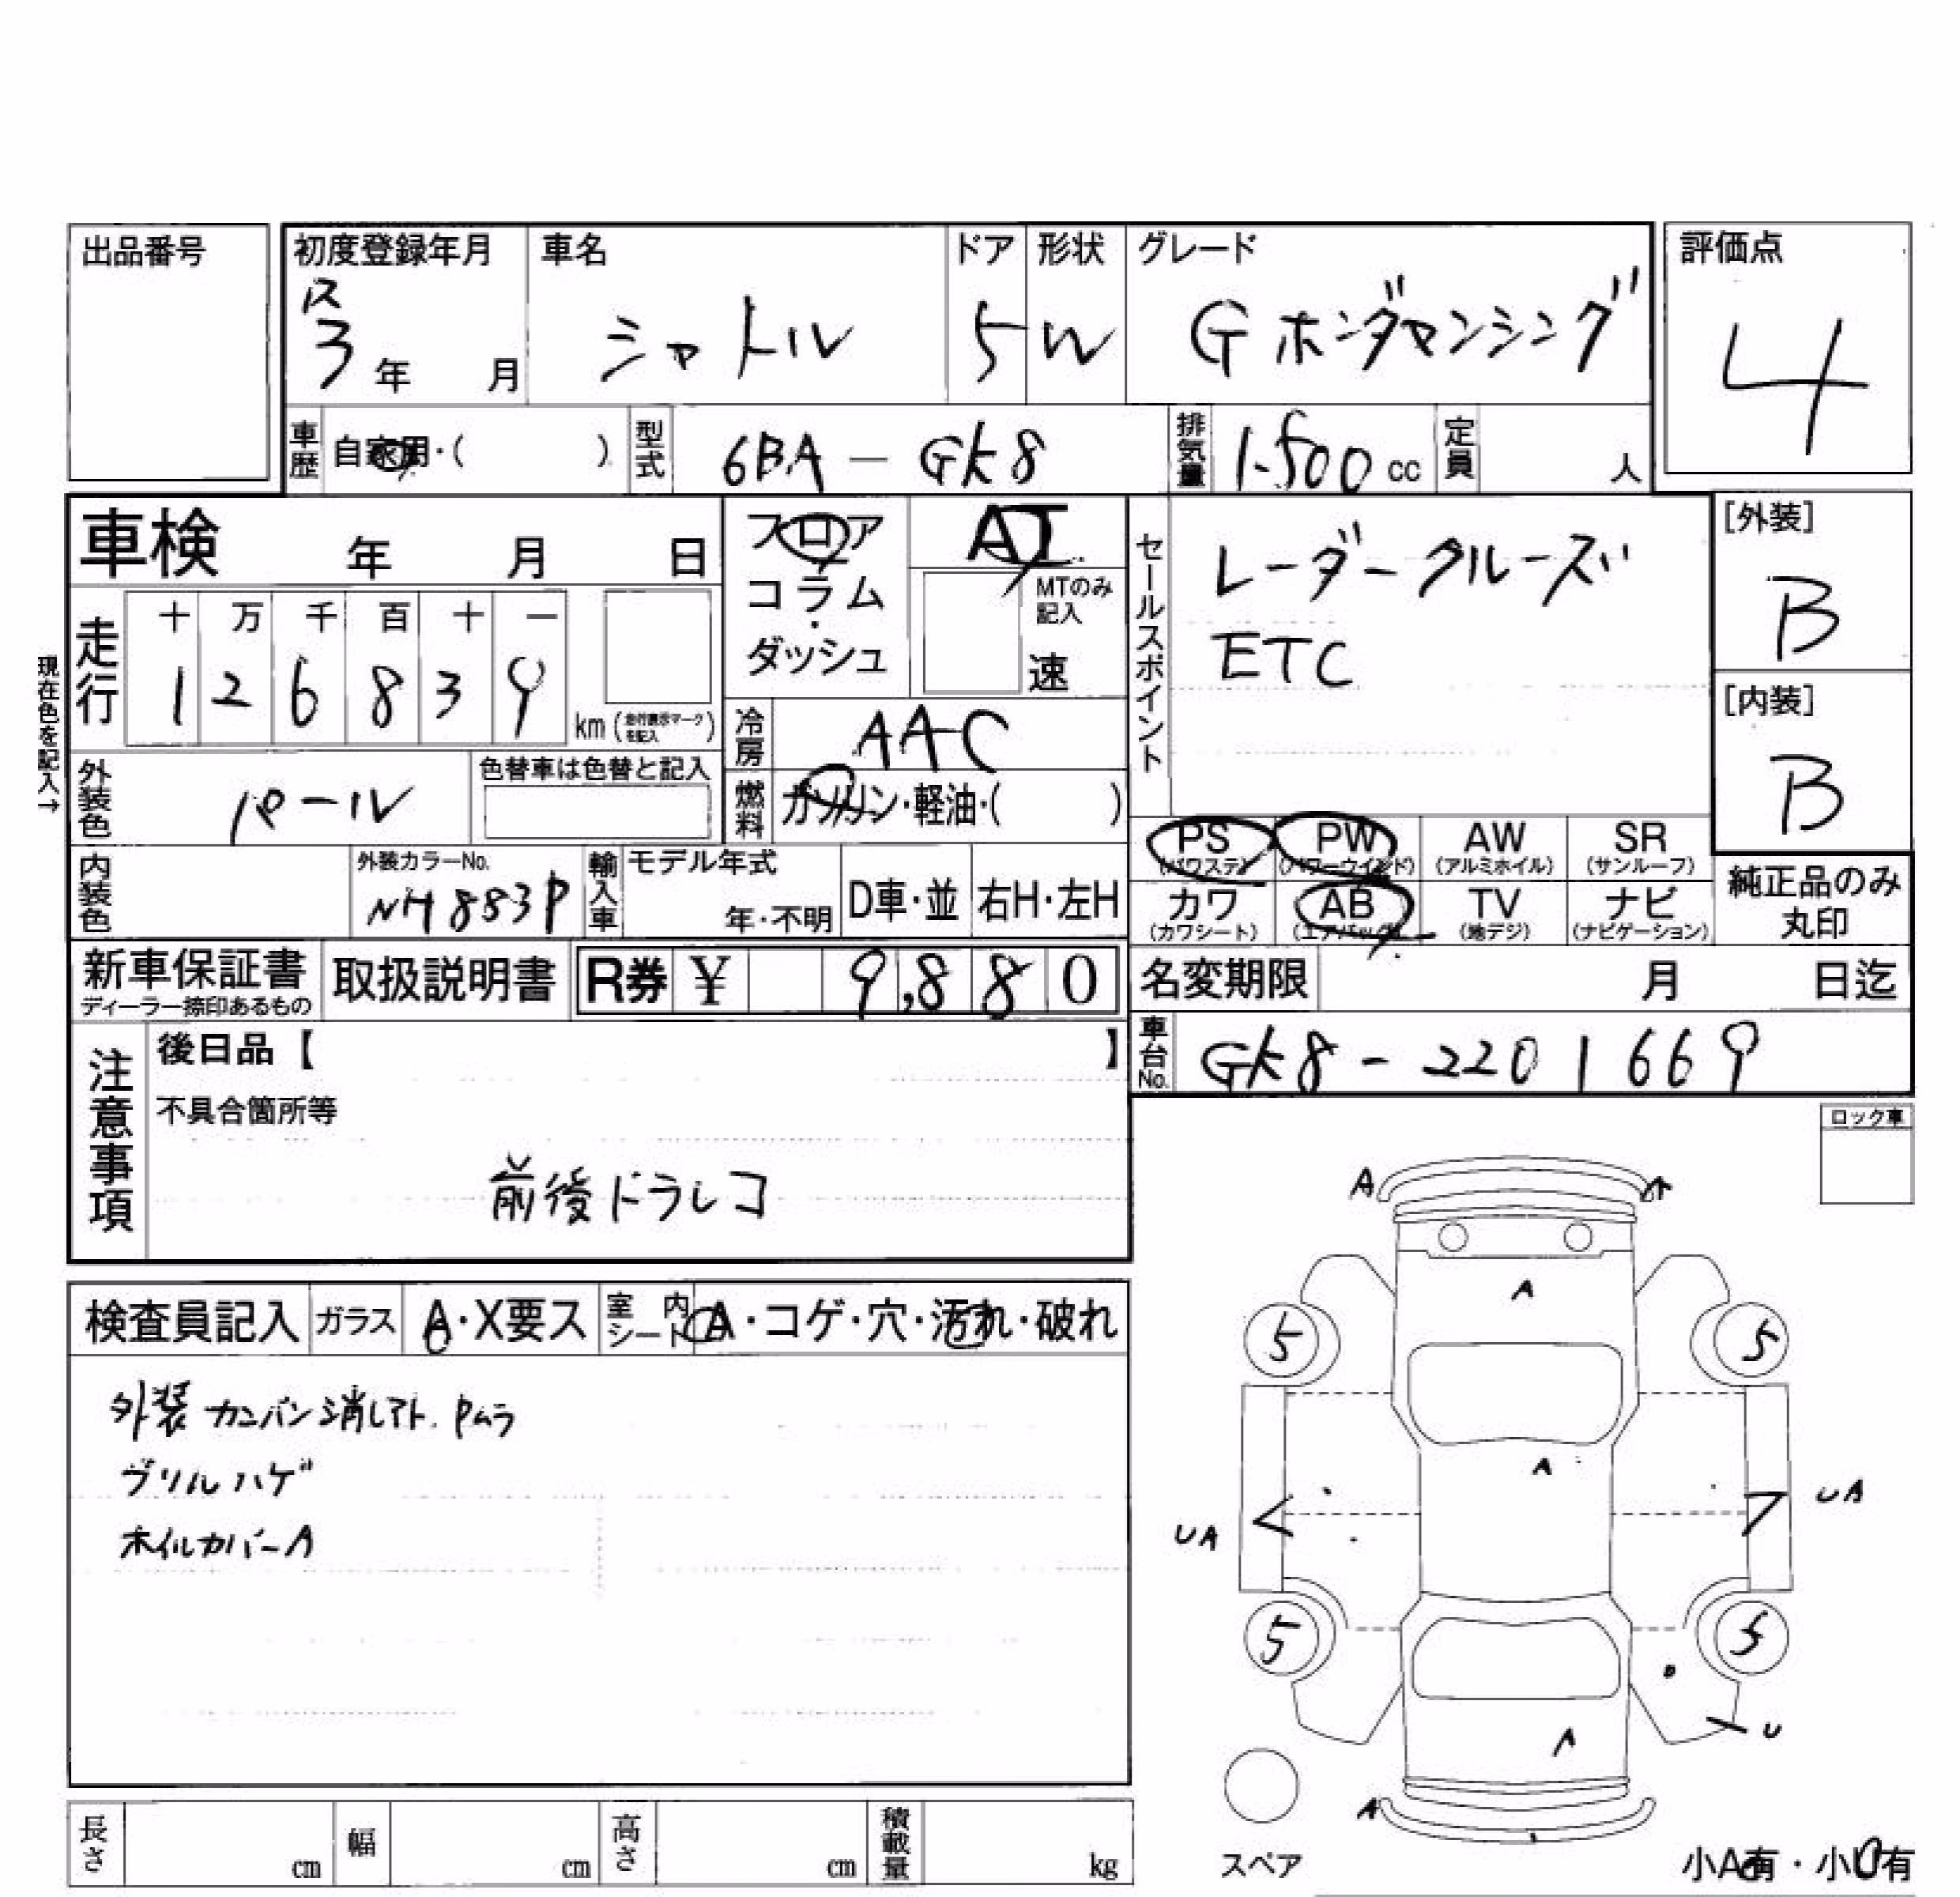 出品番号
初度登録年月
R
3年 月
車名
シャトル
ドア
5
形状
W
グレード
Gホンダセンシング
評価点
4
車歴
自家用・( )
型式
6BA-GK8
排気量
1.500cc
定員
人
車検 年 月 日
フロア
コラム
・
ダッシュ
AT
MTのみ
記入
速
セールスポイント
レーダークルーズ
ETC
[外装]
B
[内装]
B
現在色を記入→
走行
十 万 千 百 十 一
1 2 6 8 3 9
km (走行表示マークを記入)
冷房
AAC
燃料
ガソリン・軽油・( )
外装色
パール
色替車は色替と記入
内装色
外装カラーNo.
NH883P
輸入車
モデル年式
年・不明
D車・並
右H・左H
PS
(パワステ)
PW
(パワーウインド)
AW
(アルミホイル)
SR
(サンルーフ)
カワ
(カワシート)
AB
(エアバック)
TV
(地デジ)
ナビ
(ナビゲーション)
純正品のみ
丸印
新車保証書
ディーラー捺印あるもの
取扱説明書
R券 ¥ 9,880
名変期限 月 日迄
車台No.
GK8-2201669
注意事項
後日品【 】
不具合箇所等
前後ドラレコ
ロック車
検査員記入
ガラス
A・X要ス
室内
シート
A・コゲ・穴・汚れ・破れ
外装 カンバン消しアト. Pムラ
グリルハゲ
ホイルカバーA
A
A
5 5
A
UA
UA
5 5
U
A
A
スペア
小A有・小U有
長さ cm
幅 cm
高さ cm
積載量 kg